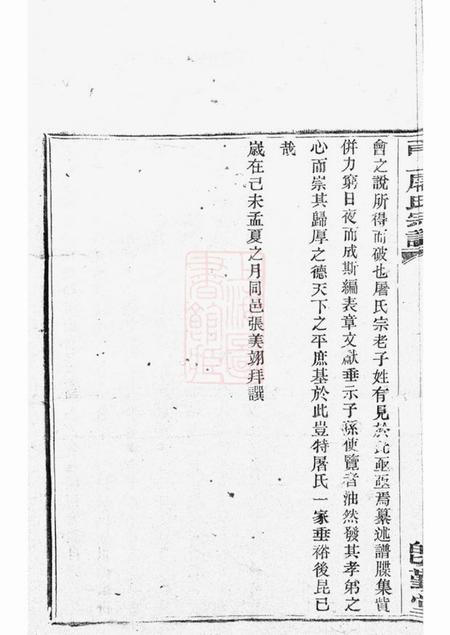 會之說所得而破也屠氏宗老子姓有見於此亟亟焉纂述譜牒集貲
併力窮日夜而成斯編表章文獻垂示子孫使覽者油然發其孝弟之
心而崇其歸厚之德天下之平庶基於此豈特屠氏一家垂裕後昆已
哉
歲在己未孟夏之月同邑張美翊拜譔
上海圖書館藏